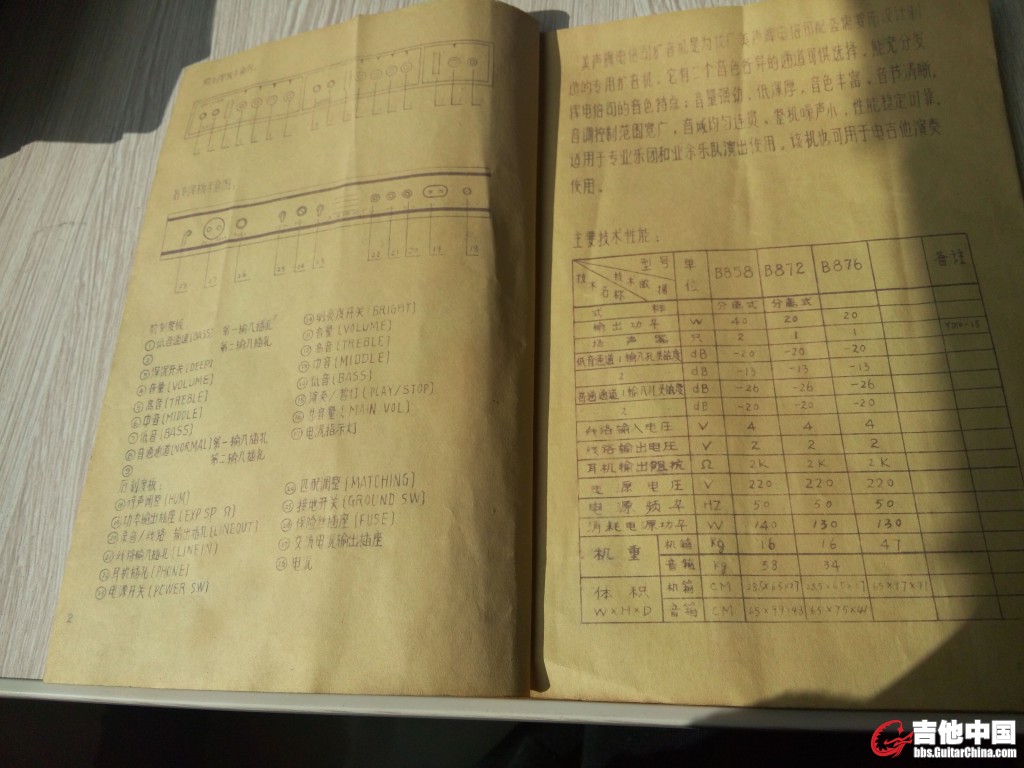 控制面板示意图
后制面板示意图
28 27 26 25 24 23 22 21 20 19 18
控制面板
①低音通道(BASS) 第一输入插孔
② 第二输入插孔
③深度开关(DEEP)
④音量(VOLUME)
⑤高音(TREBLE)
⑥中音(MIDDLE)
⑦低音(BASS)
⑧普通通道(NORMAL)第一输入插孔
⑨ 第二输入插孔
⑩明亮度开关(BRIGHT)
⑪音量(VOLUME)
⑫高音(TREBLE)
⑬中音(MIDDLE)
⑭低音(BASS)
⑮演奏/暂停(PLAY/STOP)
⑯总音量(MAIN VOL)
⑰电源指示灯
后制面板:
哼声调整(HUM)
功率输出插座(EXP SP R)
录音/线路 输出插孔(LINE OUT)
线路输入插孔(LINE IN)
耳机插孔(PHONE)
电源开关(POWER SW)
匹配调整(MATCHING)
接地开关(GROUND SW)
保险丝插座(FUSE)
交流电源输出插座
电源
2
声牌电倍司扩音机是为我厂 声牌电倍司配套需要而设计制
造的专用扩音机。它有二个音色各异的通道可供选择,能充分发
挥电倍司的音色特点:音量强劲,低音浑厚,音色丰富,音节清晰,
音调控制范围宽广,音域均匀连贯,整机噪声小,性能稳定可靠。
适用于专业乐团和业余乐队演出使用。该机也可用于电吉他演奏
使用。
主要技术性能:
技术名称 技术数据 型号 单位 B858 B872 B876 备注
式 称 分离式 分离式
输出功率 W 40 20 20
扬声器 只 2 1 1
低音通道:1输入孔灵敏度 dB -20 -20 -20
2 dB -13 -13 -13
普通通道:1输入孔灵敏度 dB -26 -26 -26
2 dB -20 -20 -20
线路输入电压 V 4 4 4
线路输出电压 V 2 2 2
耳机输出阻抗 Ω 2K 2K 2K
电源电压 V 220 220 220
电源频率 HZ 50 50 50
消耗电源功率 W 140 130 130
机重 机箱 Kg 16 16 47
音箱 Kg 38 34
体积 机箱 CM
W×H×D 音箱 CM
吉他中国
bbs.GuitarChina.com